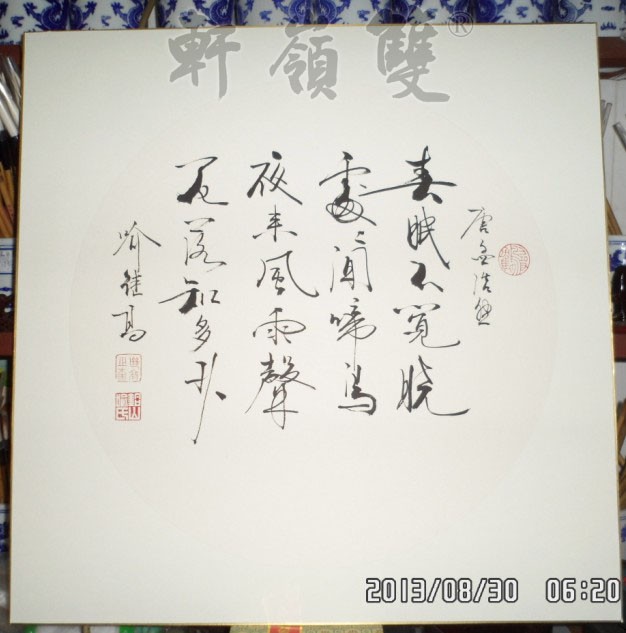 雙嶺軒®
唐孟浩然
春眠不覺晓
處〻聞啼鳥
夜来風雨聲
花落知多少
喻继高
2013/08/30 06:20